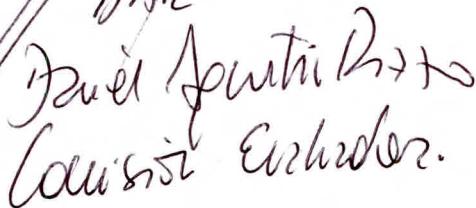 Daniel Agustín Rizzo
Comisión Evaluadora.